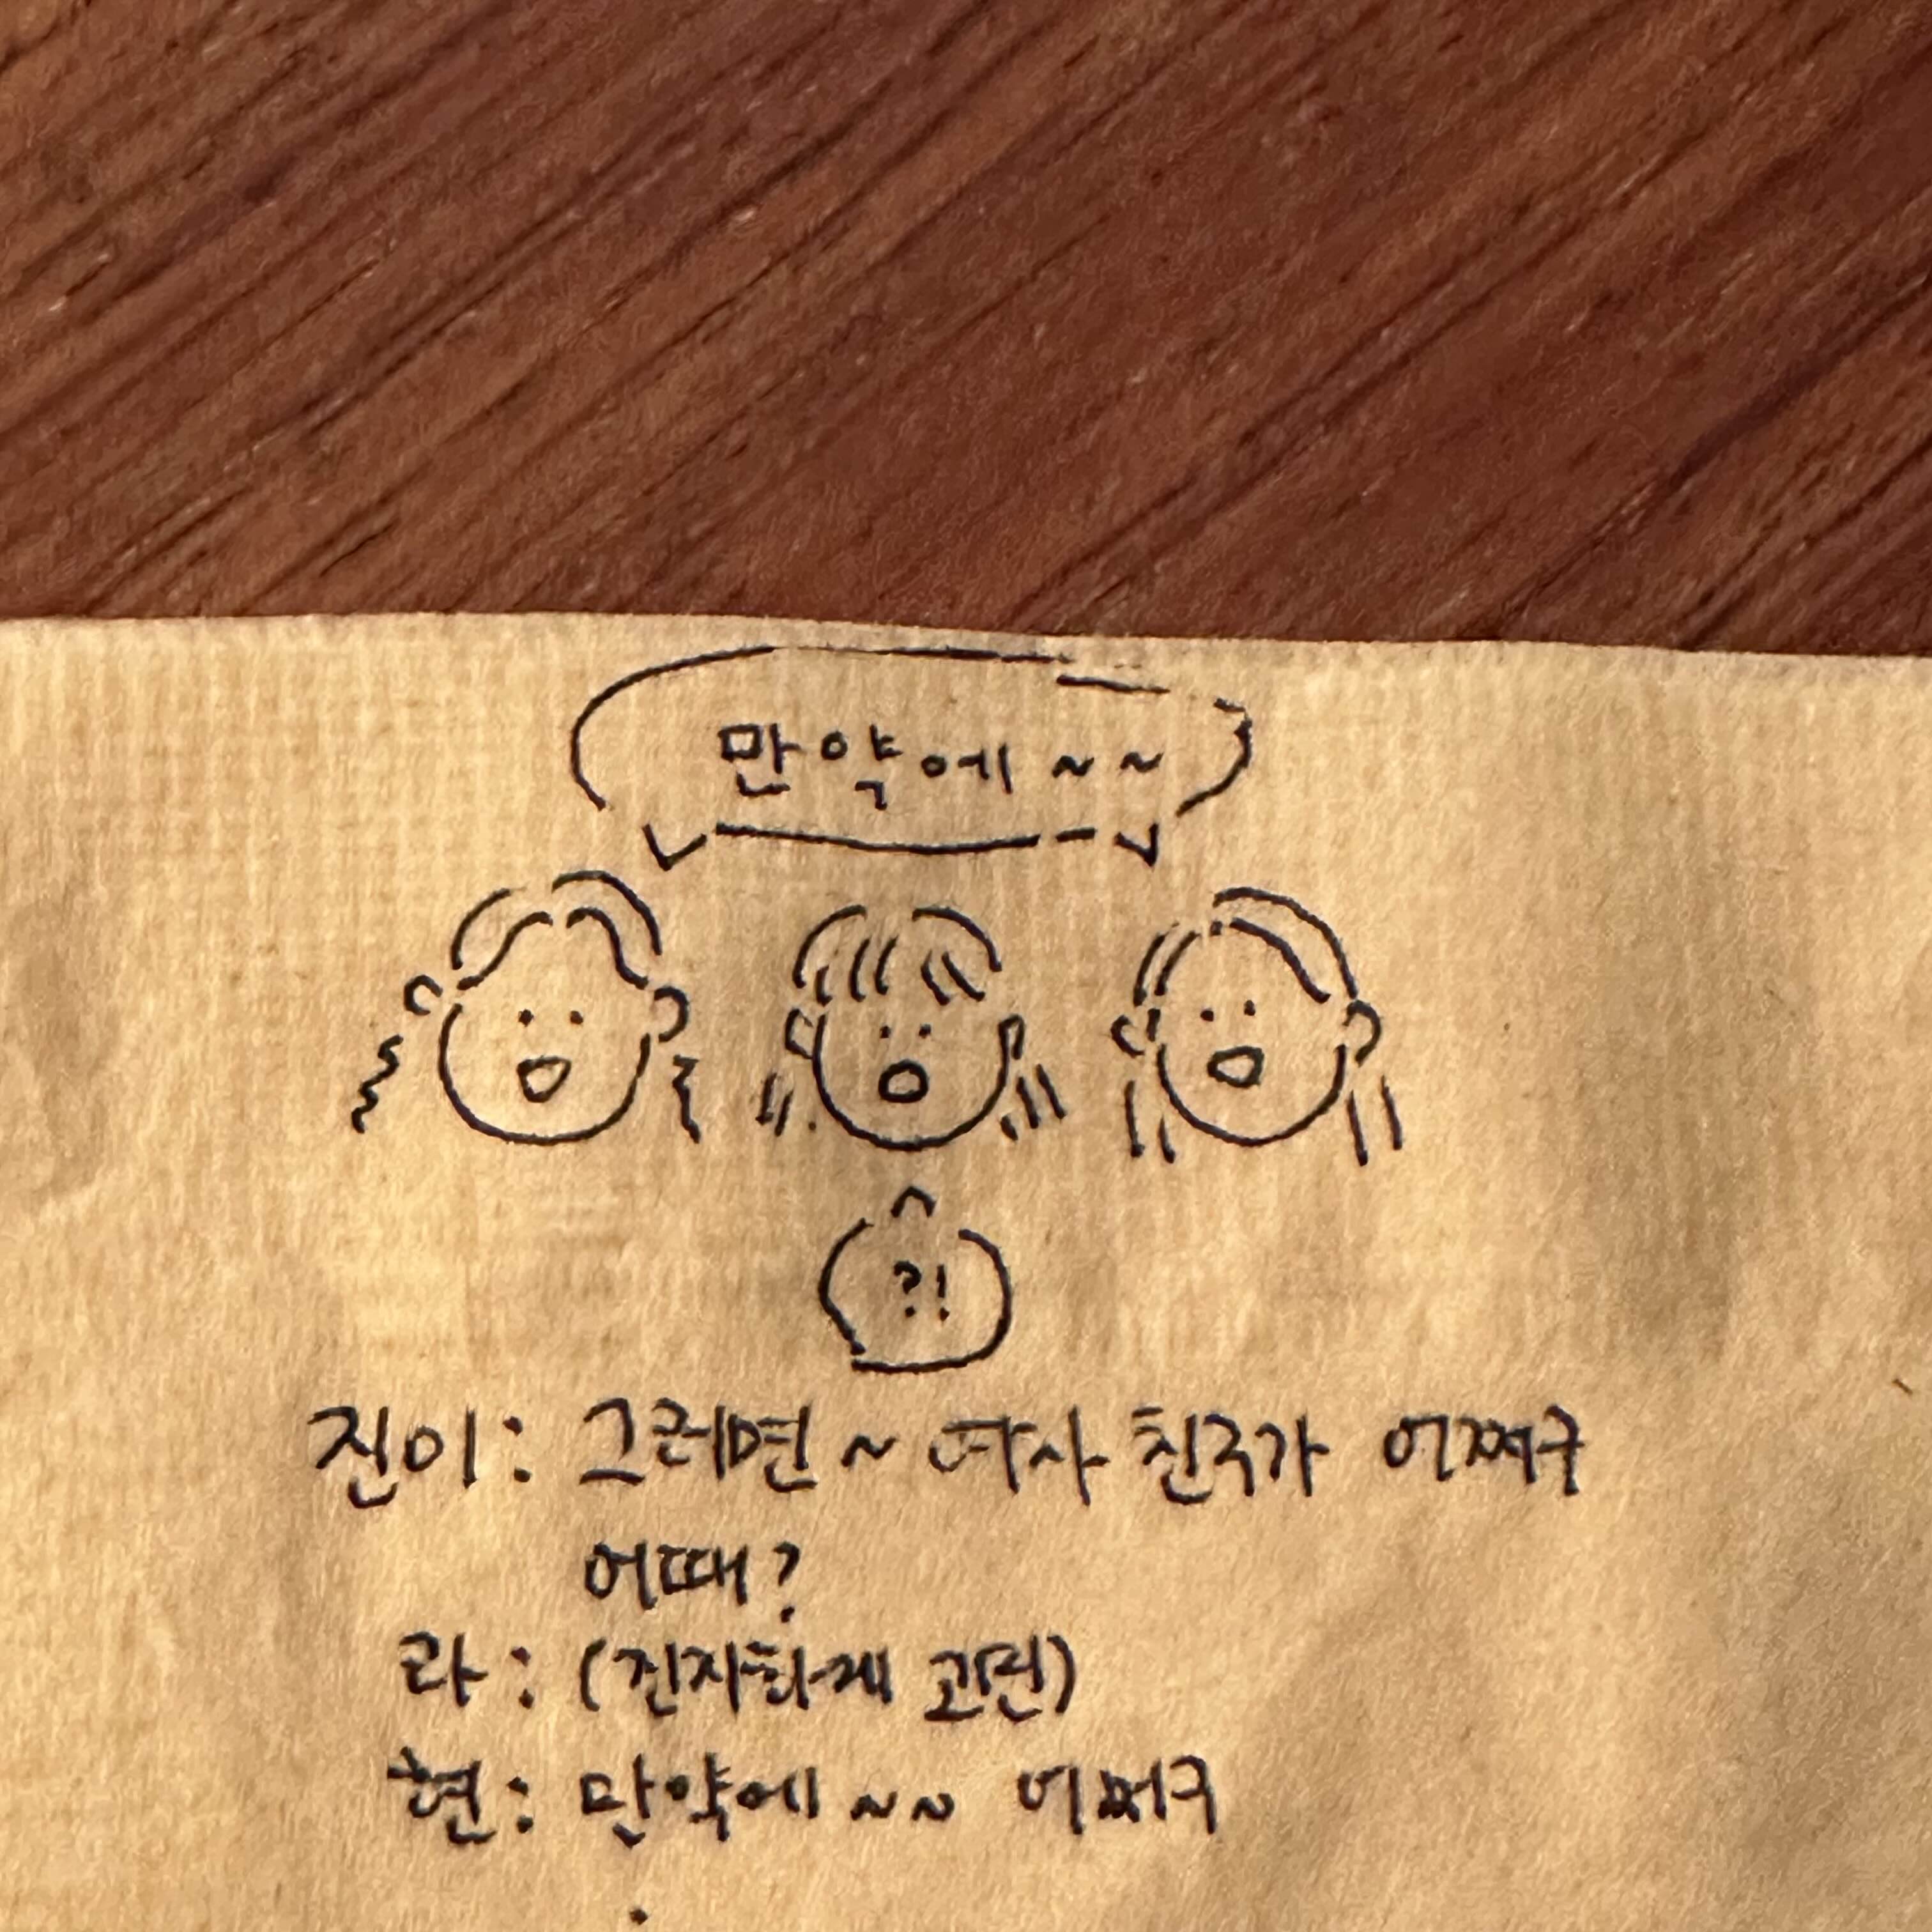 만약에 ~~
?!
진이 : 그러면 ~ 여사친구가 어쩌구
어때?
라 : (진지하게 고민)
현 : 만약에 ~~ 어쩌구